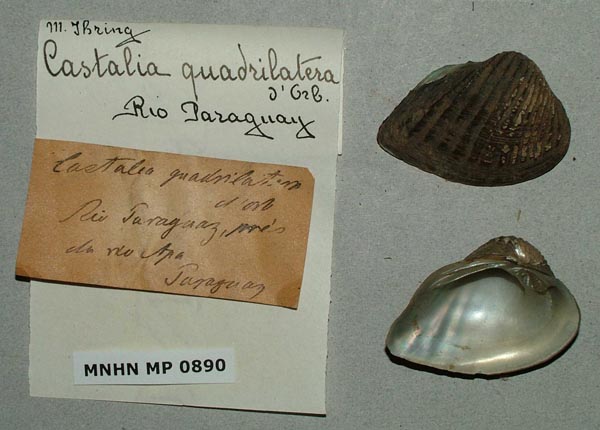 M. Jhring
Castalia quadrilatera
d'Orb.
Rio Paraguay
Castalea quadrilatera
d'orb
Rio Paraguay, près
du rio Apa
Paraguay
MNHN MP 0890